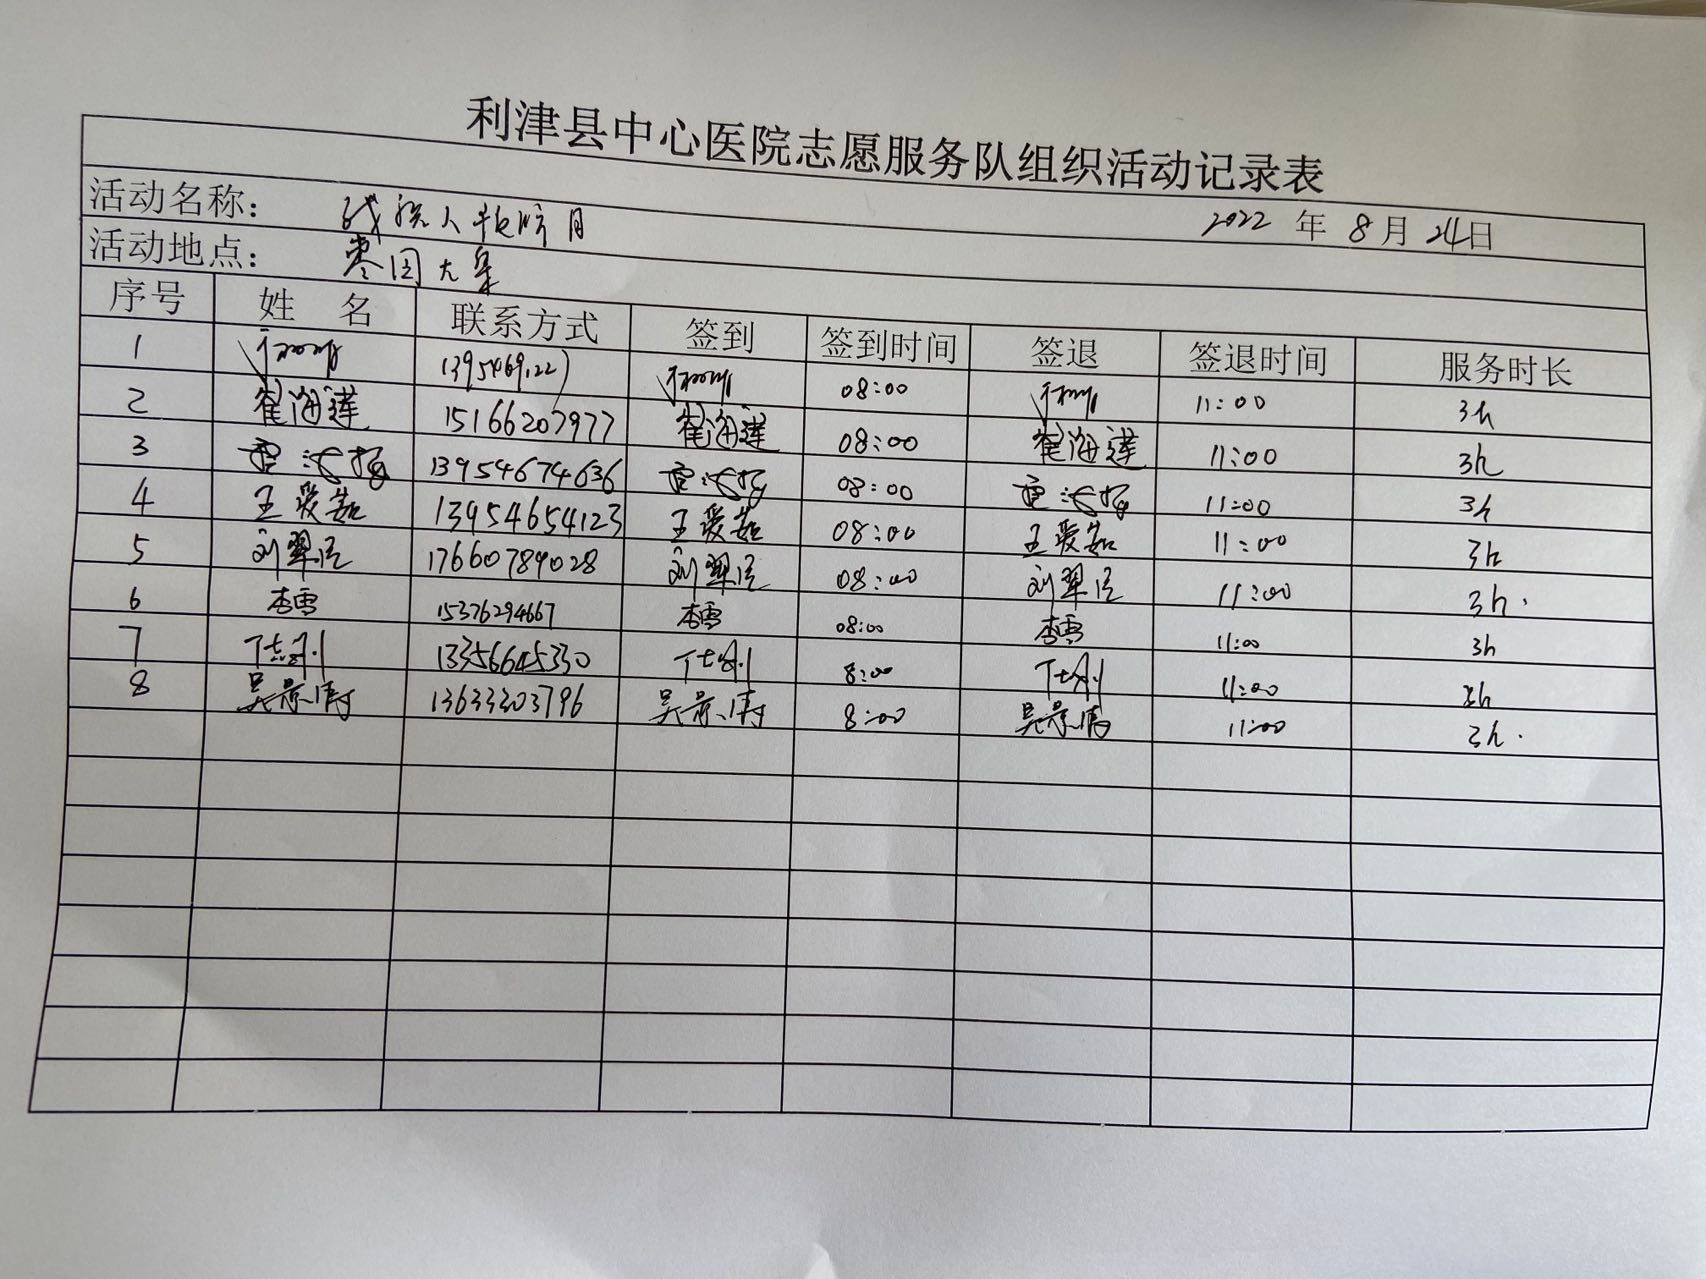 利津县中心医院志愿服务队组织活动记录表
活动名称： 2022 年 8 月 24 日
活动地点： 枣园大集
序号 姓 名 联系方式 签到 签到时间 签退 签退时间 服务时长
1 08:00 11:00 3h
2 崔海莲 15166207977 崔海莲 08:00 崔海莲 11:00 3h
3 13954674636 08:00 11:00 3h
4 王爱茹 13954654123 王爱茹 08:00 王爱茹 11:00 3h
5 17660789028 08:00 11:00 3h.
6 李雪 15376294667 李雪 08:00 李雪 11:00 3h
7 13356645330 8:00 11:00 3h
8 吴景涛 13633303796 吴景涛 8:00 吴景涛 11:00 3h.